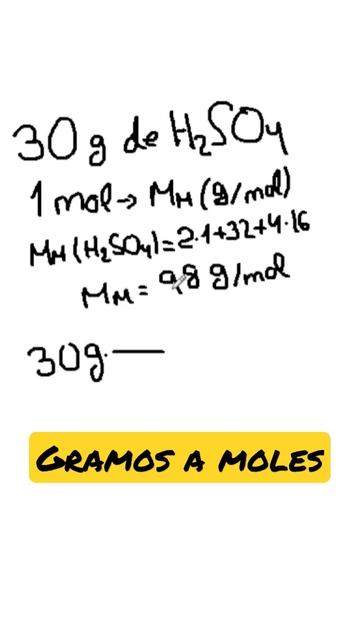 30 g de H₂SO₄
1 mol → MM (g/mol)
MM (H₂SO₄) = 2·1+32+4·16
MM = 98 g/mol
30g· —
GRAMOS A MOLES